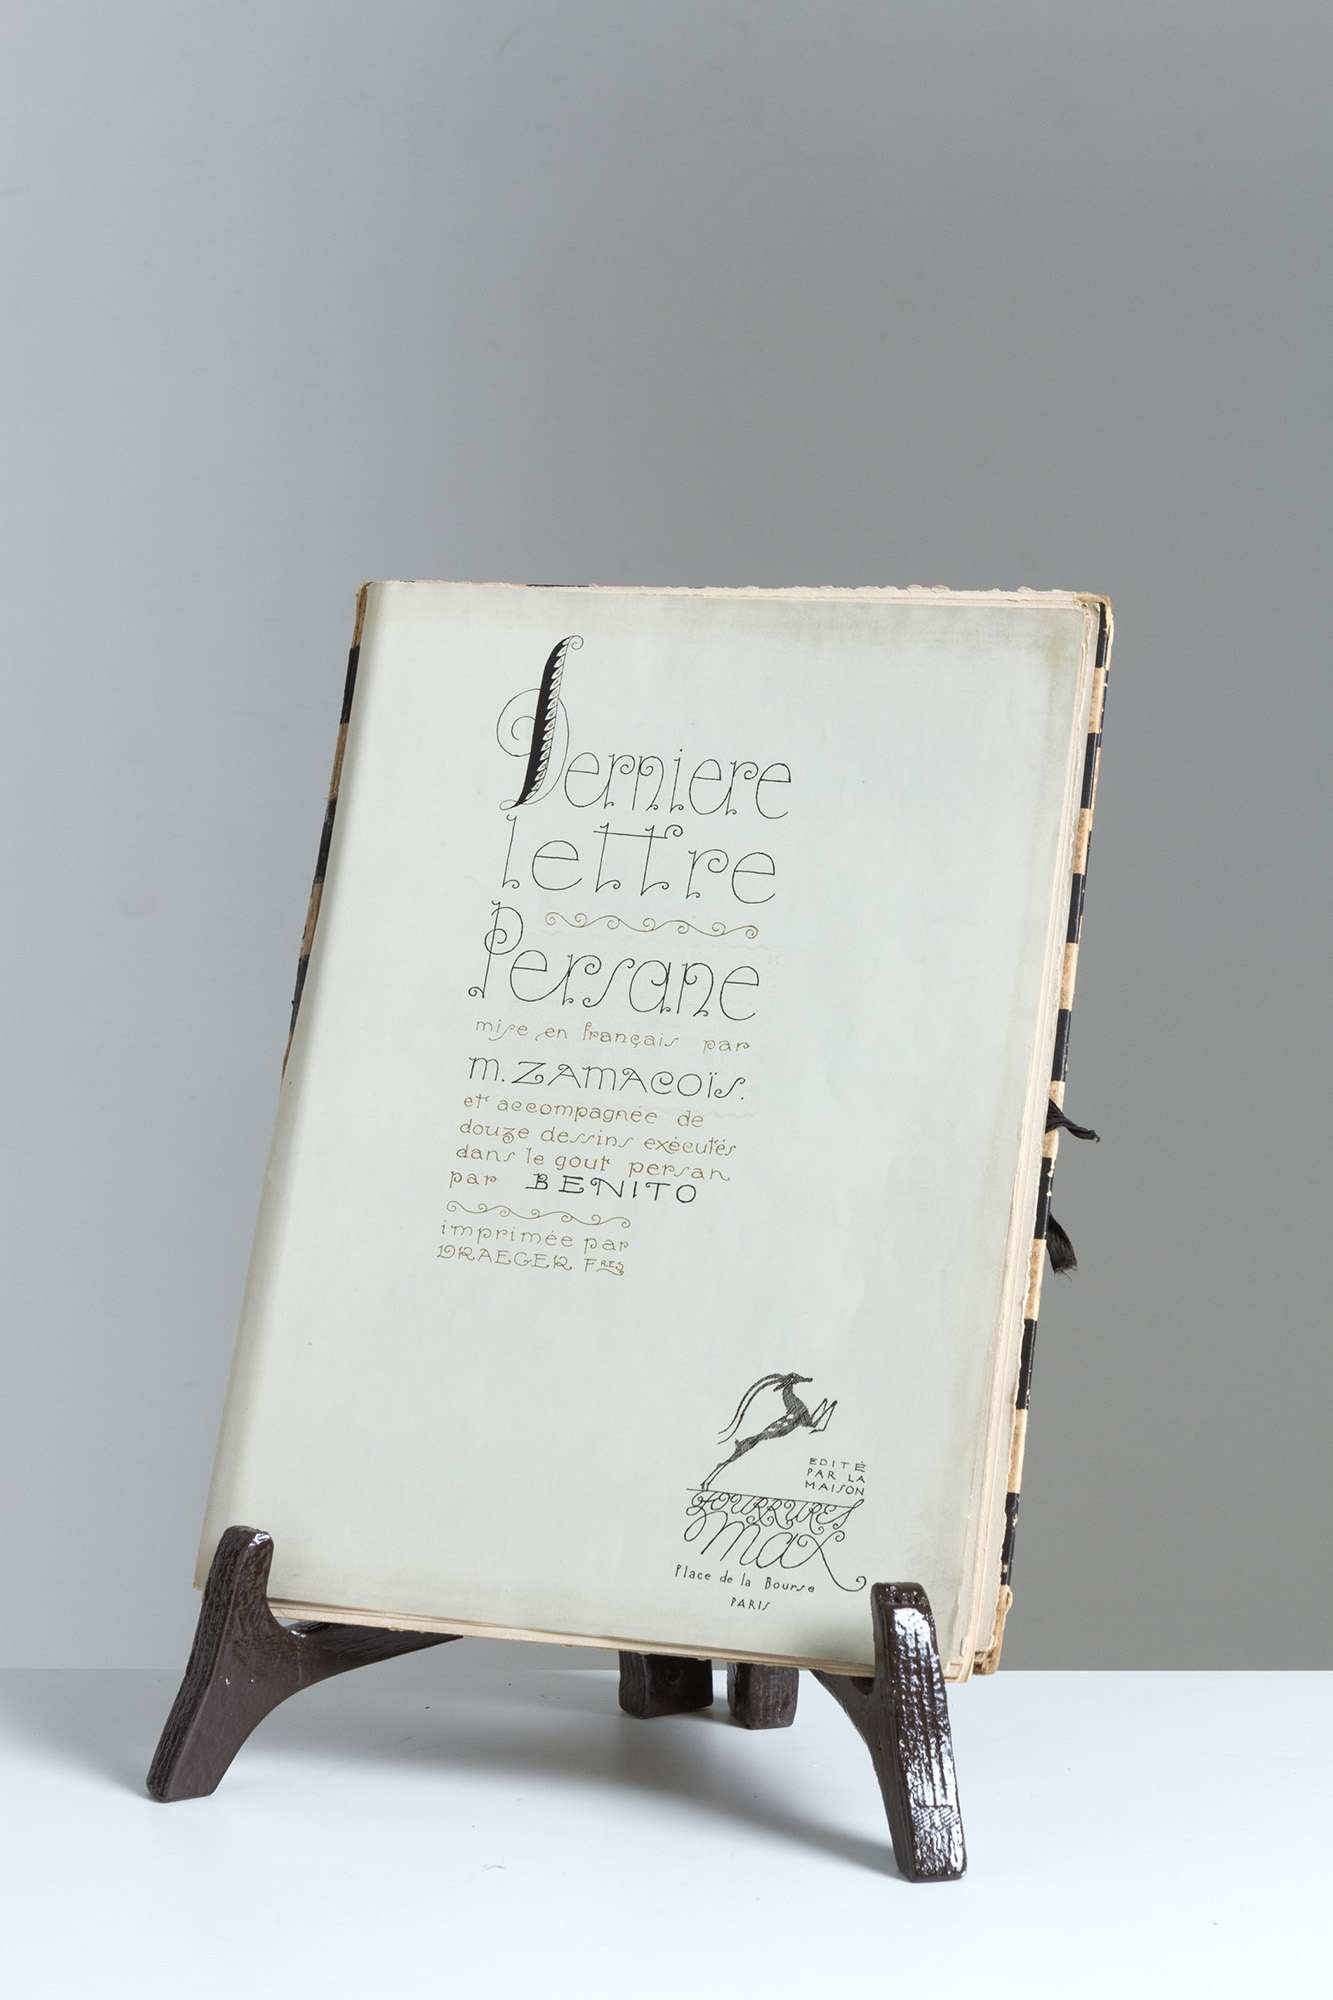 Derniere
lettre
Persane
mise en français par
M. ZAMACOÏS.
et accompagnée de
douze dessins exécutés
dans le gout persan
par BENITO
imprimée par
DRAEGER FRES
EDITÉ
PAR LA
MAISON
FOURRURES
max
Place de la Bourse
PARIS